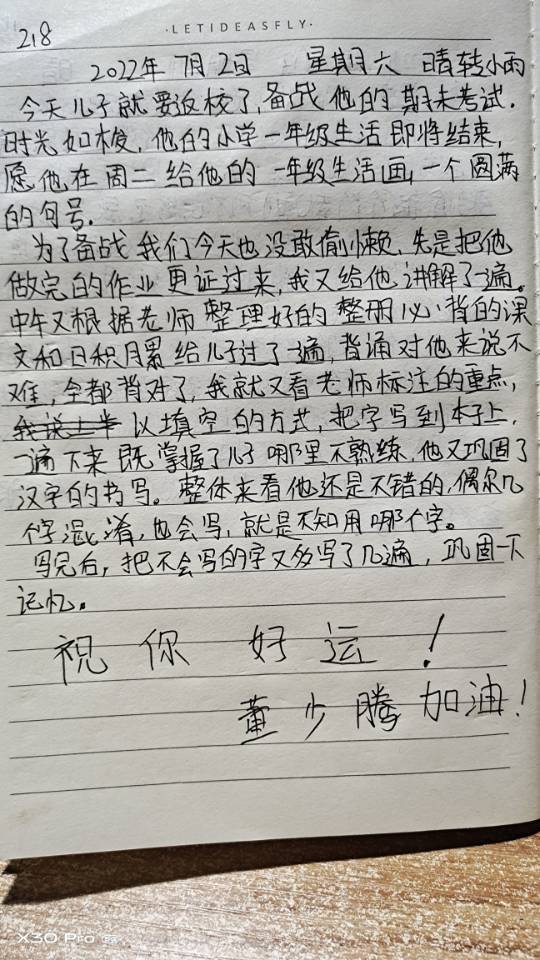 ·LETIDEASFLY·
218
2022年 7月 2日 星期六 晴转小雨
今天儿子就要返校了,备战他的期末考试.
时光如梭,他的小学一年级生活即将结束,
愿他在周二给他的一年级生活画一个圆满
的句号.
为了备战我们今天也没敢偷懒,先是把他
做完的作业更证过来,我又给他讲解了一遍。
中午又根据老师整理好的整册必背的课
文和日积月累给儿子过了一遍,背诵对他来说不
难,全都背对了,我就又看老师标注的重点,
我说上半 以填空的方式,把字写到本子上,
一遍下来既掌握了儿子哪里不熟练,他又巩固了
汉字的书写。整体来看他还是不错的,偶尔几
个字混淆,也会写,就是不知用哪个字。
写完后,把不会写的字又多写了几遍,巩固一下
记忆。
祝你好运!
董少腾加油!
X30 Pro